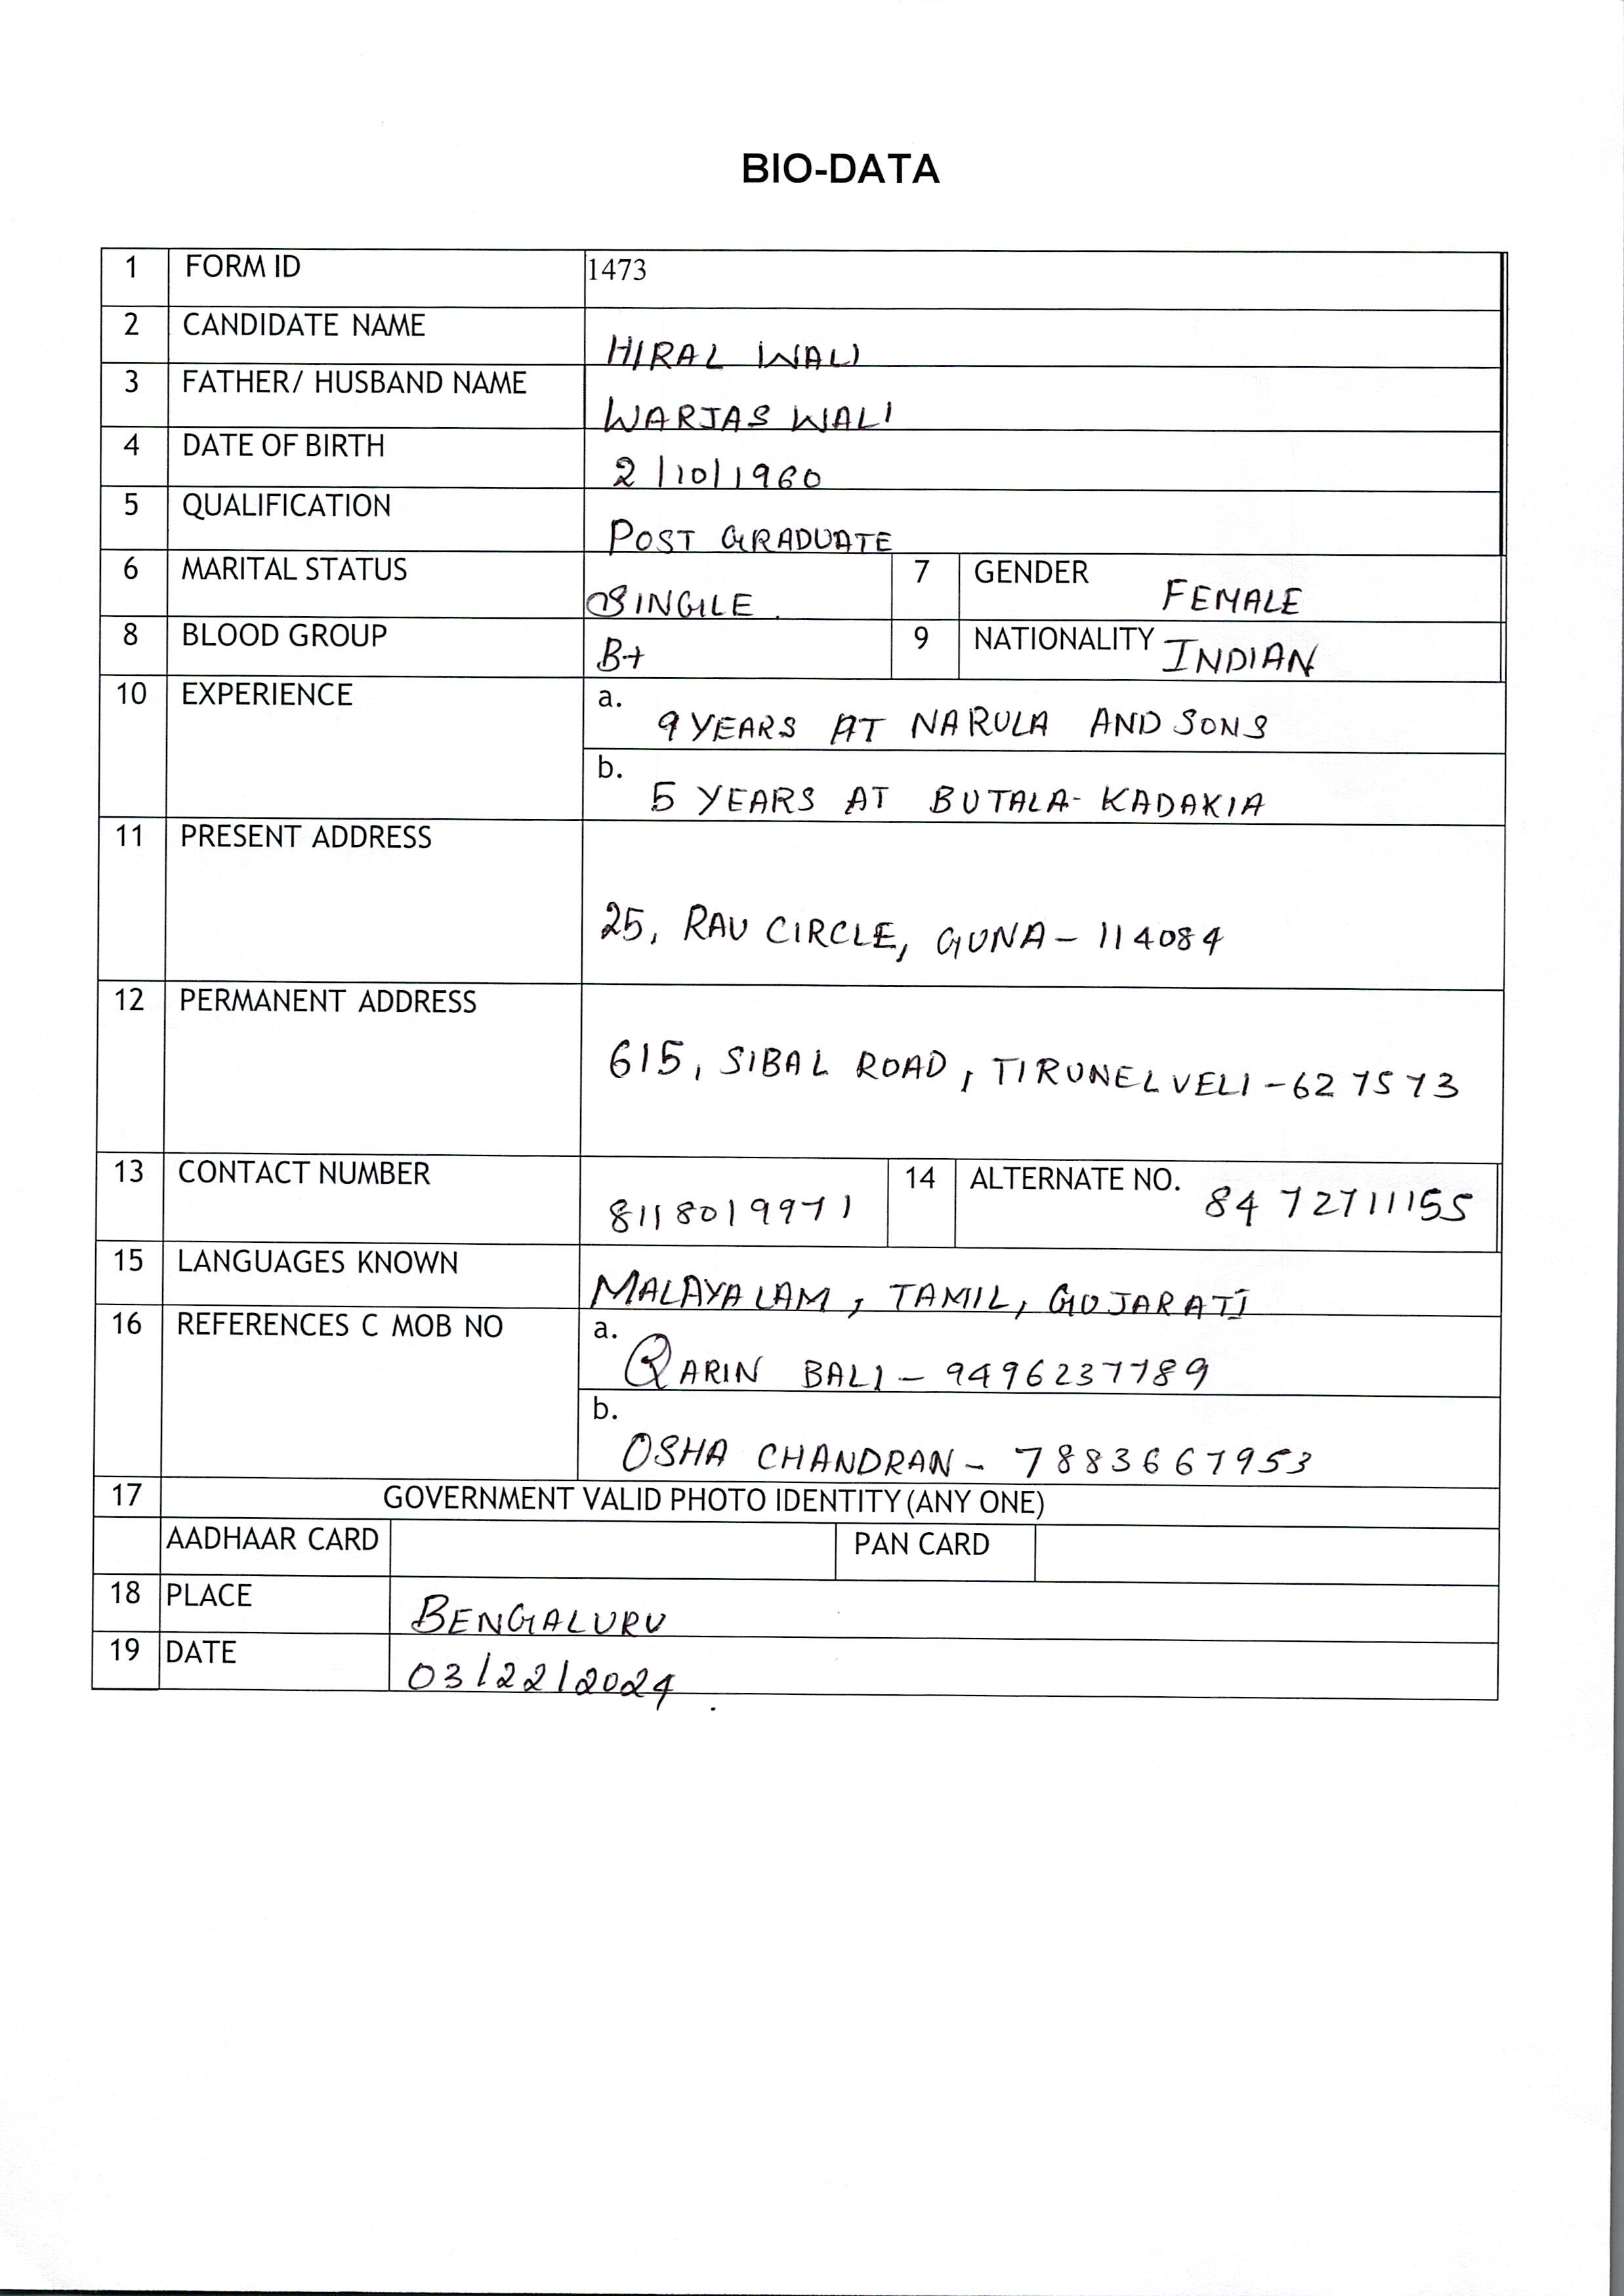 BIO-DATA
1 FORM ID 1473
2 CANDIDATE NAME HIRAL WALI
3 FATHER/ HUSBAND NAME WARJAS WALI
4 DATE OF BIRTH 2/10/1960
5 QUALIFICATION POST GRADUATE
6 MARITAL STATUS SINGLE. 7 GENDER FEMALE
8 BLOOD GROUP B+ 9 NATIONALITY INDIAN
10 EXPERIENCE a. 9 YEARS AT NARULA AND SONS
b. 5 YEARS AT BUTALA-KADAKIA
11 PRESENT ADDRESS
25, RAU CIRCLE, GUNA - 114084
12 PERMANENT ADDRESS
615, SIBAL ROAD, TIRUNELVELI - 627573
13 CONTACT NUMBER 8118019971 14 ALTERNATE NO. 8472711155
15 LANGUAGES KNOWN MALAYALAM, TAMIL, GUJARATI
16 REFERENCES C MOB NO a. QARIN BALI - 9496237789
b. OSHA CHANDRAN - 7883667953
17 GOVERNMENT VALID PHOTO IDENTITY (ANY ONE)
AADHAAR CARD PAN CARD
18 PLACE BENGALURU
19 DATE 03/22/2024